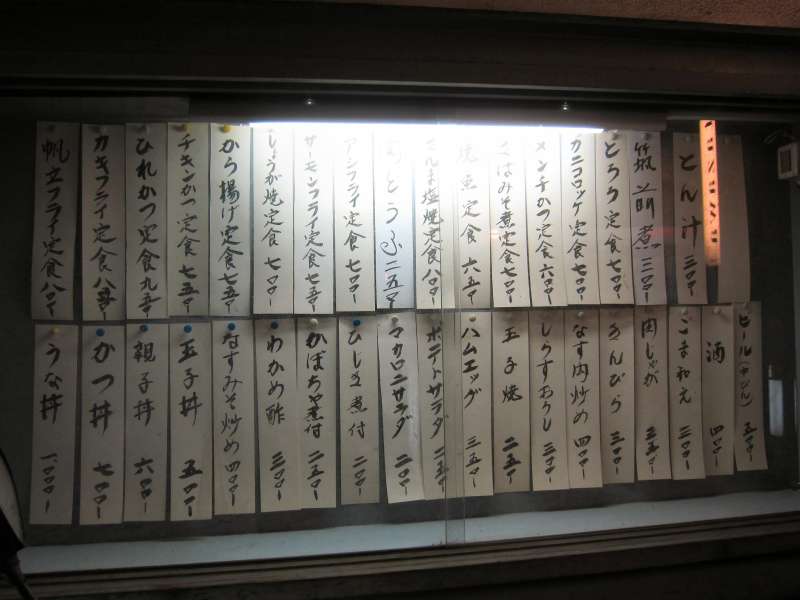 とん汁 三〇〇-
筑前煮 三〇〇-
とろろ定食 七〇〇-
カニコロッケ定食 七〇〇-
メンチかつ定食 六〇〇-
さばみそ煮定食 七〇〇-
焼魚定食 六五〇-
さんま塩焼定食 八〇〇-
二五〇-
アジフライ定食 七〇〇-
サーモンフライ定食 七五〇-
しょうが焼定食 七〇〇-
から揚げ定食 七五〇-
チキンかつ定食 七五〇-
ひれかつ定食 九五〇-
カキフライ定食 八五〇-
帆立フライ定食 八〇〇-
ビール(中びん) 五〇〇-
酒 四〇〇-
ごま和え 三〇〇-
肉じゃが 三五〇-
きんぴら 三〇〇-
なす肉炒め 四〇〇-
しらすおろし 三〇〇-
玉子焼 二五〇-
ハムエッグ 三五〇-
ポテトサラダ 二五〇-
マカロニサラダ 二〇〇-
ひじき煮付 二〇〇-
かぼちゃ煮付 二五〇-
わかめ酢 三〇〇-
なすみそ炒め 四〇〇-
玉子丼 五〇〇-
親子丼 六〇〇-
かつ丼 七〇〇-
うな丼 一〇〇〇-